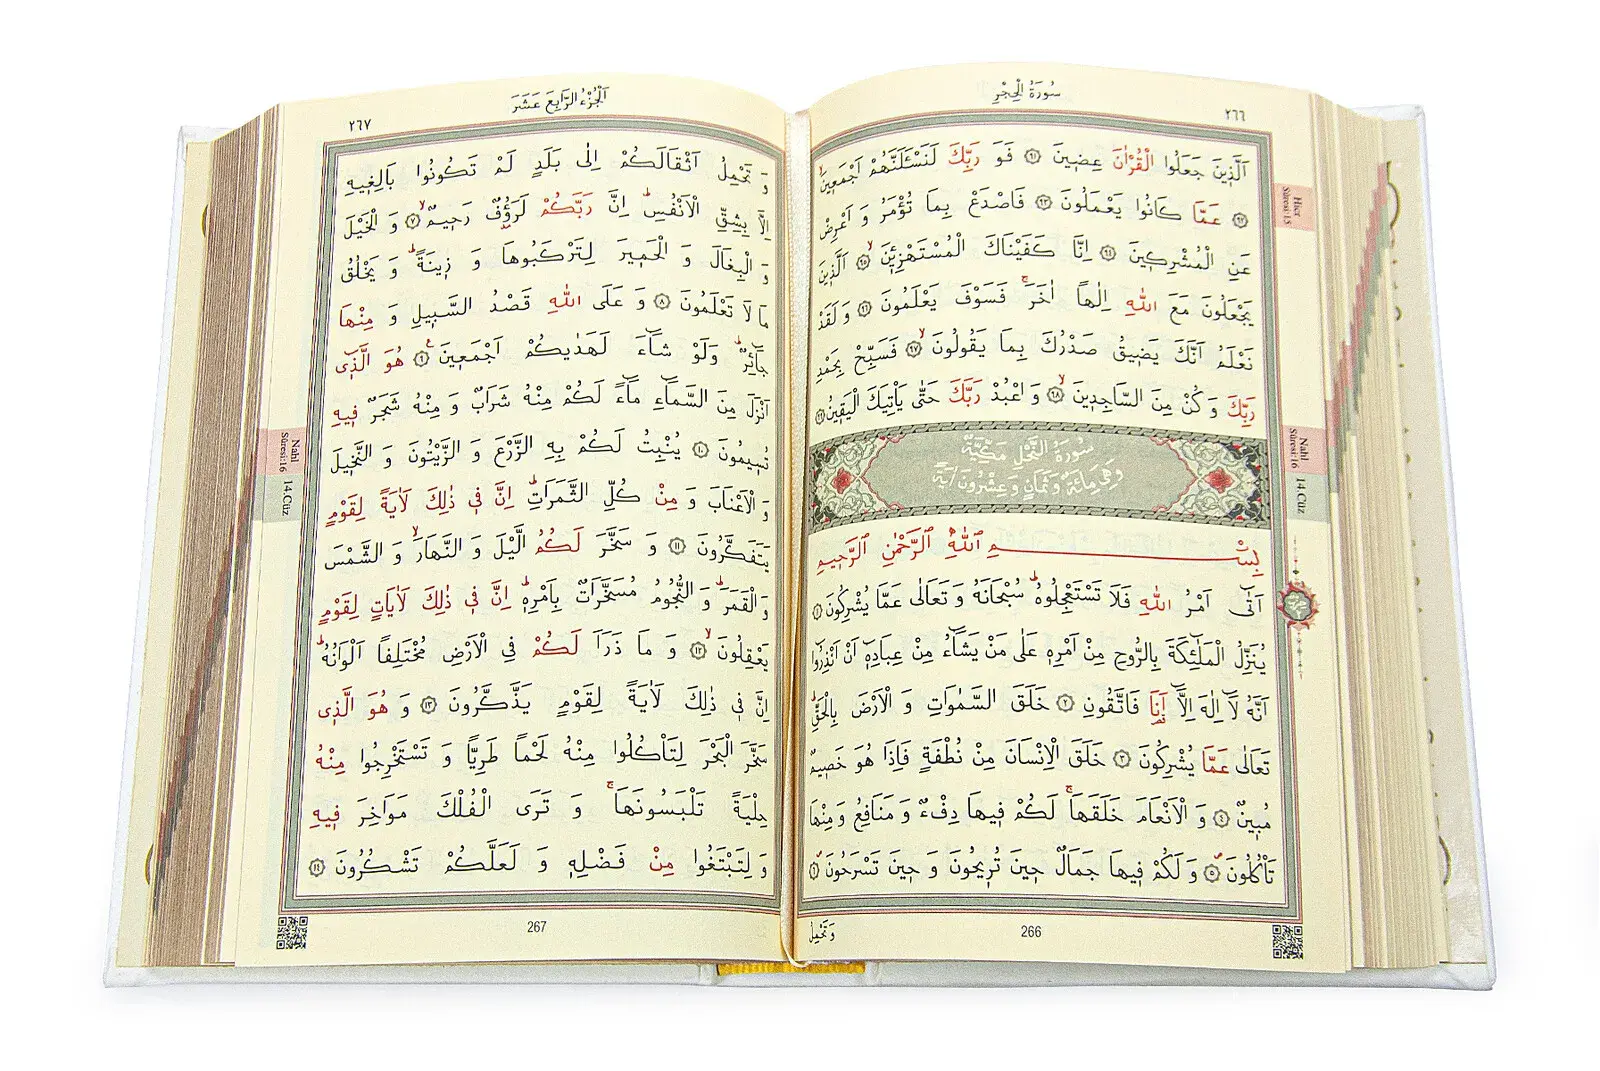 سُورَةُ الْحِجْرِ
٢٦٦
اَلَّذٖينَ جَعَلُوا الْقُرْاٰنَ عِضٖينَ ﴿٩١﴾ فَوَ رَبِّكَ لَنَسْـَٔلَنَّهُمْ اَجْمَعٖينَۙ
﴿٩٢﴾ عَمَّا كَانُوا يَعْمَلُونَ ﴿٩٣﴾ فَاصْدَعْ بِمَا تُؤْمَرُ وَ اَعْرِضْ
عَنِ الْمُشْرِكٖينَ ﴿٩٤﴾ اِنَّا كَفَيْنَاكَ الْمُسْتَهْزِئٖينَۙ ﴿٩٥﴾ اَلَّذٖينَ
يَجْعَلُونَ مَعَ اللّٰهِ اِلٰهاً اٰخَرَۚ فَسَوْفَ يَعْلَمُونَ ﴿٩٦﴾ وَ لَقَدْ
نَعْلَمُ اَنَّكَ يَضٖيقُ صَدْرُكَ بِمَا يَقُولُونَۙ ﴿٩٧﴾ فَسَبِّحْ بِحَمْدِ
رَبِّكَ وَ كُنْ مِنَ السَّاجِدٖينَۙ ﴿٩٨﴾ وَ اعْبُدْ رَبَّكَ حَتّٰى يَأْتِيَكَ الْيَقٖينُ ﴿٩٩﴾
سُورَةُ النَّحْلِ مَكِّيَّةٌ
وَهِيَ مِائَةٌ وَ ثَمَانٍ وَ عِشْرُونَ اٰيَةً
بِسْمِ اللّٰهِ الرَّحْمٰنِ الرَّحٖيمِ
اَتٰٓى اَمْرُ اللّٰهِ فَلَا تَسْتَعْجِلُوهُؕ سُبْحَانَهُ وَ تَعَالٰى عَمَّا يُشْرِكُونَ ﴿١﴾
يُنَزِّلُ الْمَلٰٓئِكَةَ بِالرُّوحِ مِنْ اَمْرِهٖ عَلٰى مَنْ يَشَٓاءُ مِنْ عِبَادِهٖٓ اَنْ اَنْذِرُٓوا
اَنَّهُ لَٓا اِلٰهَ اِلَّٓا اَنَا۬ فَاتَّقُونِ ﴿٢﴾ خَلَقَ السَّمٰوَاتِ وَ الْاَرْضَ بِالْحَقِّؕ
تَعَالٰى عَمَّا يُشْرِكُونَ ﴿٣﴾ خَلَقَ الْاِنْسَانَ مِنْ نُطْفَةٍ فَاِذَا هُوَ خَصٖيمٌ
مُبٖينٌ ﴿٤﴾ وَ الْاَنْعَامَ خَلَقَهَاۚ لَكُمْ فٖيهَا دِفْءٌ وَ مَنَافِعُ وَ مِنْهَا
تَأْكُلُونَ ﴿٥﴾ وَ لَكُمْ فٖيهَا جَمَالٌ حٖينَ تُرٖيحُونَ وَ حٖينَ تَسْرَحُونَ ﴿٦﴾
وَ تَحْمِلُ
266
Hicr
Sûresi:15
Nahl
Sûresi:16
14.Cüz
اَلْجُزْءُ الرَّابِعَ عَشَرَ
٢٦٧
وَ تَحْمِلُ اَثْقَالَكُمْ اِلٰى بَلَدٍ لَمْ تَكُونُوا بَالِغٖيهِ
اِلَّا بِشِقِّ الْاَنْفُسِؕ اِنَّ رَبَّكُمْ لَرَؤُ۫فٌ رَحٖيمٌۙ ﴿٧﴾ وَ الْخَيْلَ
وَ الْبِغَالَ وَ الْحَمٖيرَ لِتَرْكَبُوهَا وَ زٖينَةًؕ وَ يَخْلُقُ
مَا لَا تَعْلَمُونَ ﴿٨﴾ وَ عَلَى اللّٰهِ قَصْدُ السَّبٖيلِ وَ مِنْهَا
جَٓائِرٌؕ وَلَوْ شَٓاءَ لَهَدٰيكُمْ اَجْمَعٖينَ ﴿٩﴾ هُوَ الَّذٖٓي
اَنْزَلَ مِنَ السَّمَٓاءِ مَٓاءً لَكُمْ مِنْهُ شَرَابٌ وَ مِنْهُ شَجَرٌ فٖيهِ
تُسٖيمُونَ ﴿١٠﴾ يُنْبِتُ لَكُمْ بِهِ الزَّرْعَ وَ الزَّيْتُونَ وَ النَّخٖيلَ
وَ الْاَعْنَابَ وَ مِنْ كُلِّ الثَّمَرَاتِؕ اِنَّ فٖي ذٰلِكَ لَاٰيَةً لِقَوْمٍ
يَتَفَكَّرُونَ ﴿١١﴾ وَ سَخَّرَ لَكُمُ الَّيْلَ وَ النَّهَارَۙ وَ الشَّمْسَ
وَ الْقَمَرَؕ وَ النُّجُومُ مُسَخَّرَاتٌ بِاَمْرِهٖؕ اِنَّ فٖي ذٰلِكَ لَاٰيَاتٍ لِقَوْمٍ
يَعْقِلُونَۙ ﴿١٢﴾ وَ مَا ذَرَاَ لَكُمْ فِي الْاَرْضِ مُخْتَلِفًا اَلْوَانُهُؕ
اِنَّ فٖي ذٰلِكَ لَاٰيَةً لِقَوْمٍ يَذَّكَّرُونَ ﴿١٣﴾ وَ هُوَ الَّذٖي
سَخَّرَ الْبَحْرَ لِتَأْكُلُوا مِنْهُ لَحْماً طَرِيًّا وَ تَسْتَخْرِجُوا مِنْهُ
حِلْيَةً تَلْبَسُونَهَاۚ وَ تَرَى الْفُلْكَ مَوَاخِرَ فٖيهِ
وَ لِتَبْتَغُوا مِنْ فَضْلِهٖ وَ لَعَلَّكُمْ تَشْكُرُونَ ﴿١٤﴾
267
Nahl
Sûresi:16
14.Cüz